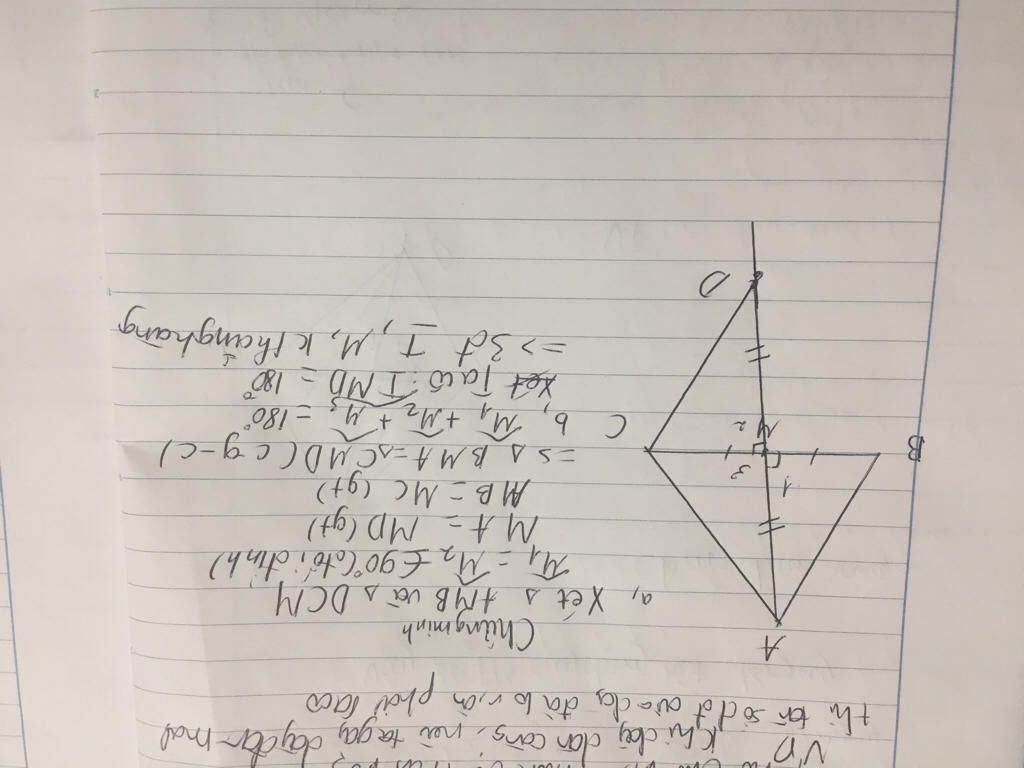 VD
Khi dây đàn căng, nếu ta gảy dây đàn
thì
phải
Chứng minh
a, Xét △ AMB và △ DCM
M1 = M2 = 90° (đối đỉnh)
MA = MD (gt)
MB = MC (gt)
=> △ BMA = △ CMD (c g-c)
b, M1 + M2 + M3 = 180°
Xét Ta có: IMD = 180°
=> 3đ I, M, K thẳng hàng
A
B
C
D
M
1
2
3